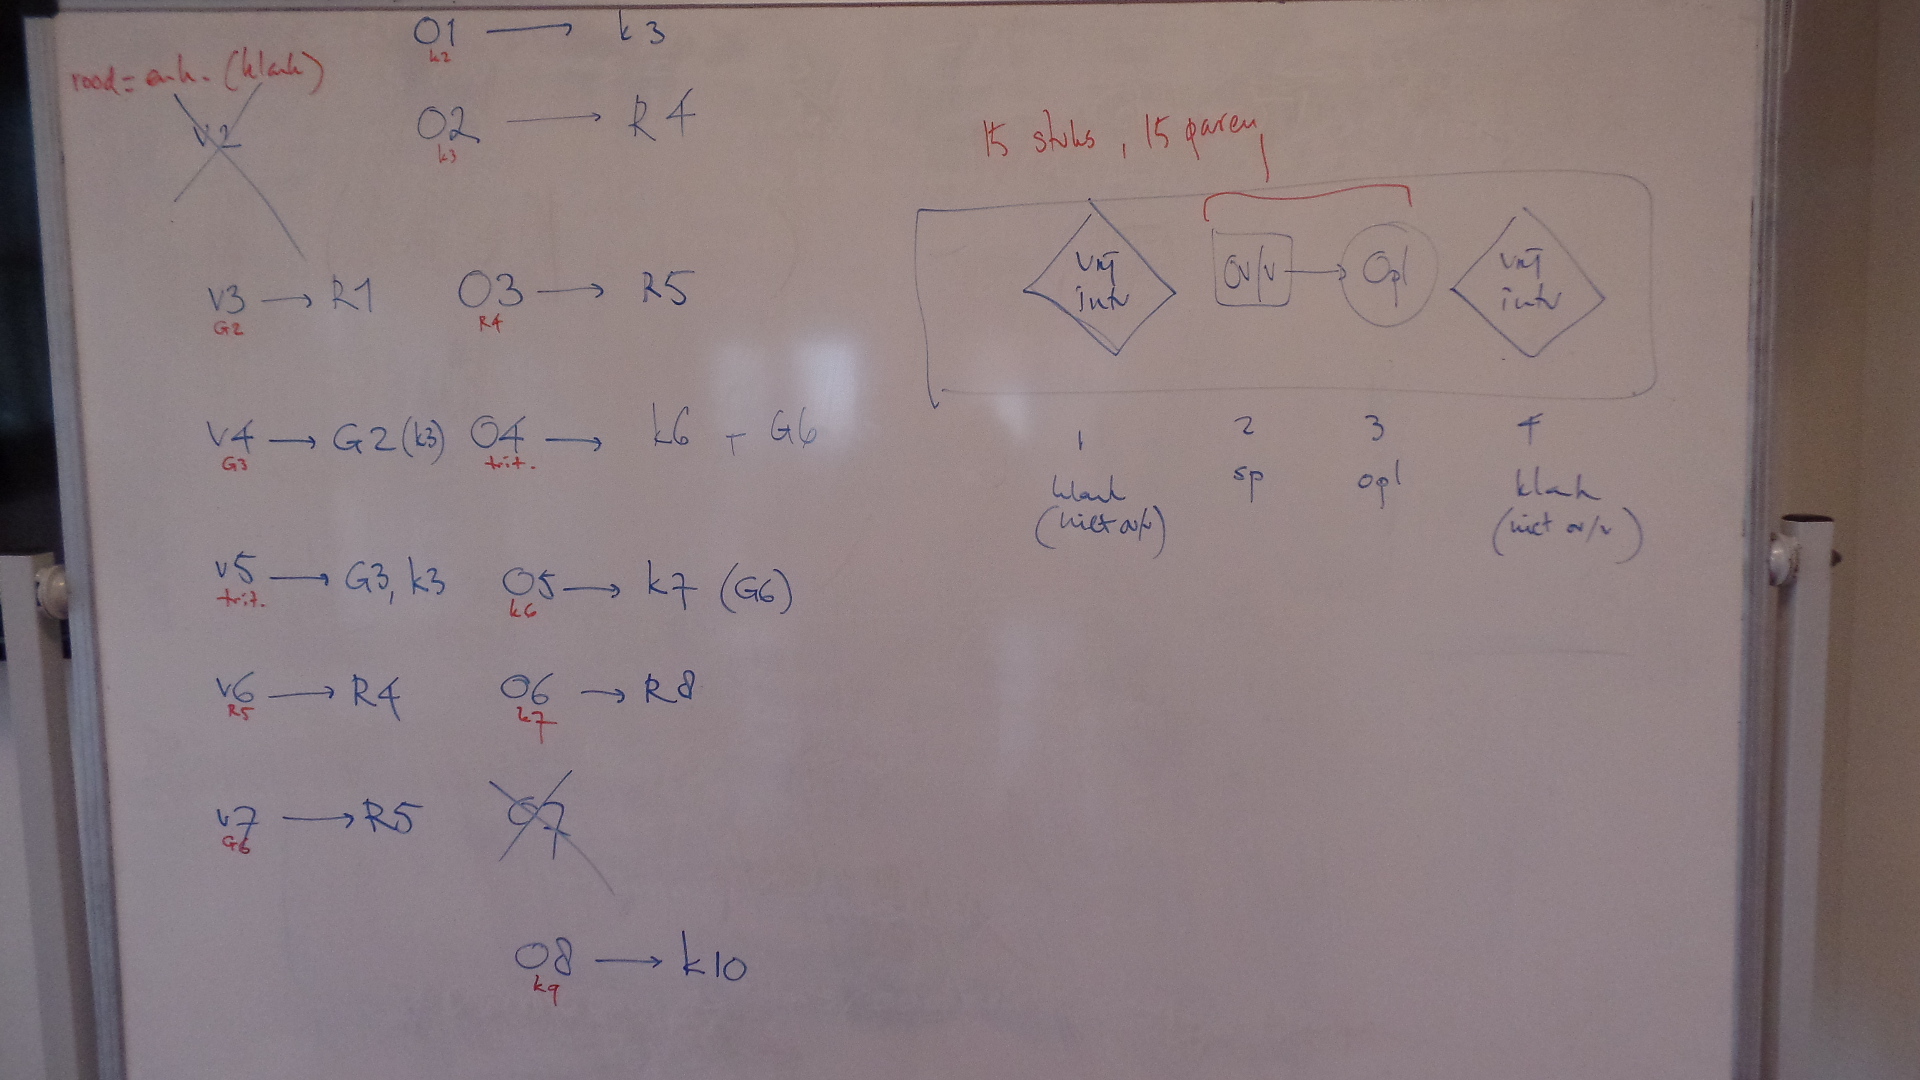 rood = enh. (klank)
v2
O1 → k3
k2
O2 → R4
k3
v3 → R1
G2
O3 → R5
R4
v4 → G2 (k3)
G3
O4 → k6 + G6
trit.
v5 → G3, k3
trit.
O5 → k7 (G6)
k6
v6 → R4
R5
O6 → R8
k7
v7 → R5
G6
O7
O8 → k10
k9
15 stuks, 15 paren
vrij
intv
Ov/v → Opl
vrij
intv
1 2 3 4
klank sp opl klank
(niet ov/v) (niet ov/v)